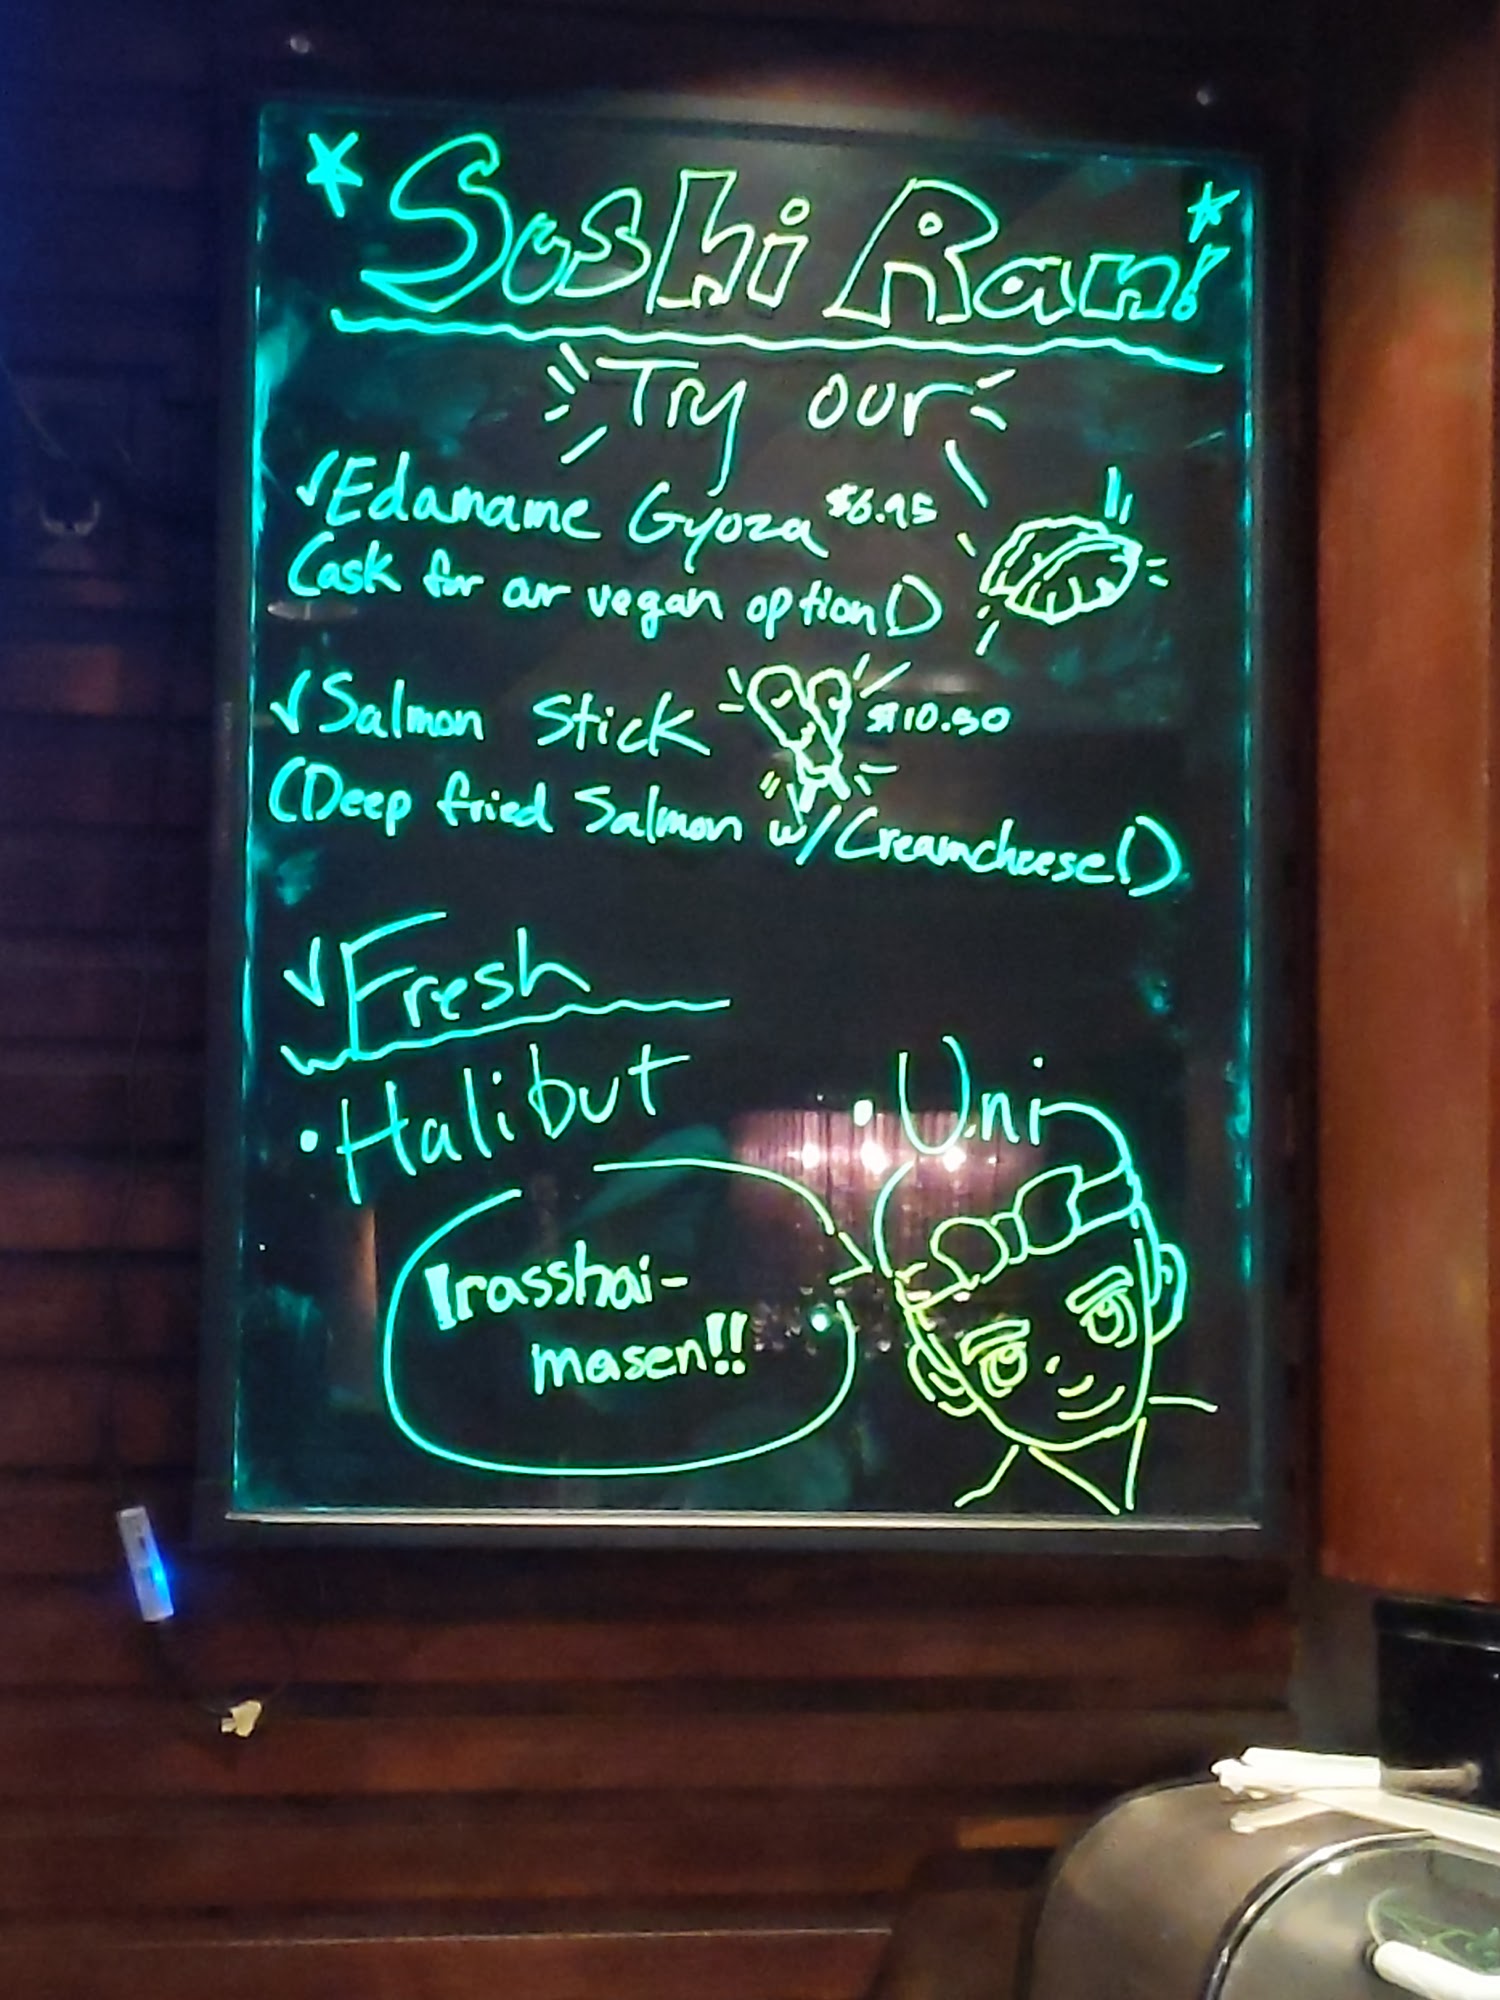 Sushi Ran!
Try our
✓Edamame Gyoza $6.95
(ask for our vegan option)
✓Salmon Stick $10.50
(Deep fried Salmon w/Creamcheese)
✓Fresh
•Halibut
•Uni
Irasshai-
masen!!